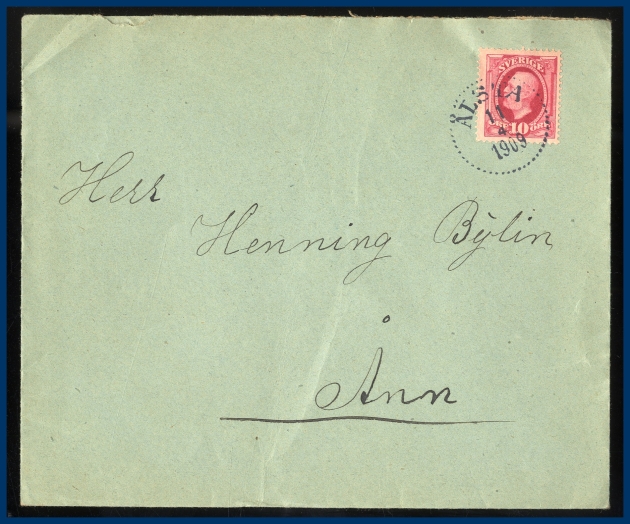 SVERIGE
10 ÖRE
11
4
1909
Herr
Henning Bylin
Ånn